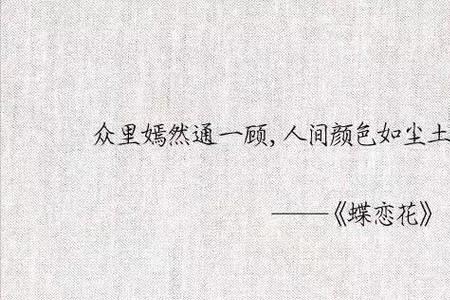 众里嫣然通一顾,人间颜色如尘土
——《蝶恋花》